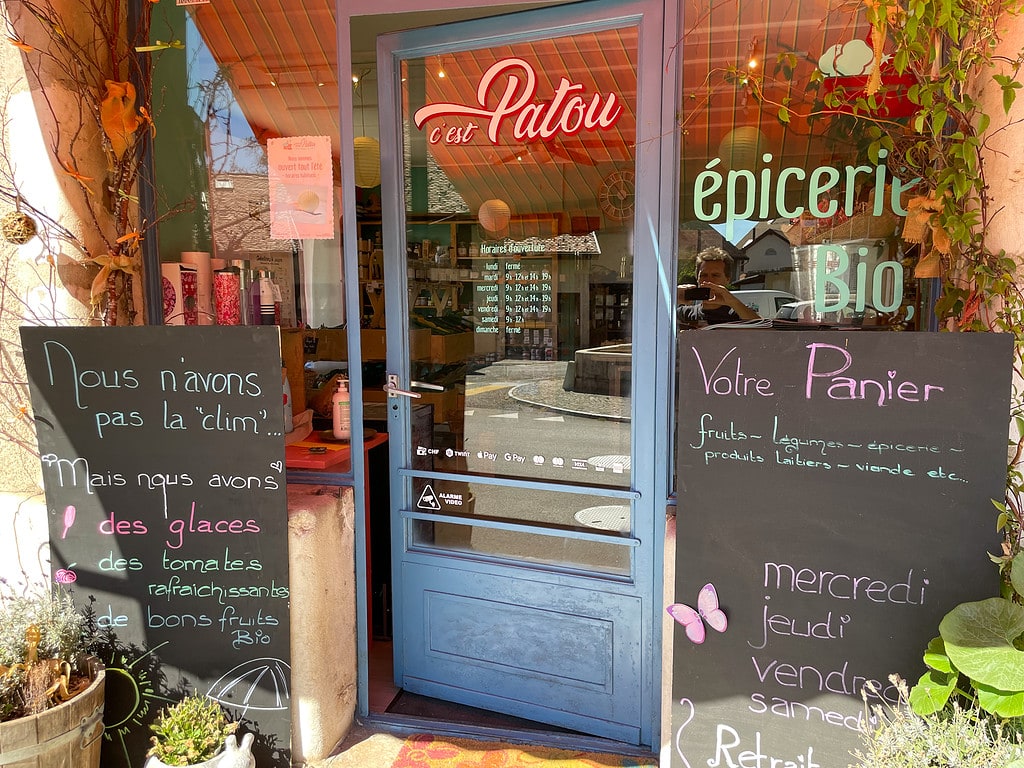 c'est Patou
Nous sommes
ouvert tout l'été
Horaires d'ouverture
lundi fermé
mardi 9h 12h et 14h 19h
mercredi 9h 12h et 14h 19h
jeudi 9h 12h et 14h 19h
vendredi 9h 12h et 14h 19h
samedi 9h 12h
dimanche fermé
CHF TWINT Pay G Pay VISA
ALARME
VIDEO
épicerie
Bio,
Nous n'avons
pas la "clim"...
Mais nous avons
des glaces
des tomates
rafraichissantes
de bons fruits
Bio
Votre Panier
fruits - légumes - épicerie -
produits laitiers - viande etc...
mercredi
jeudi
vendred
samedi
Retrait